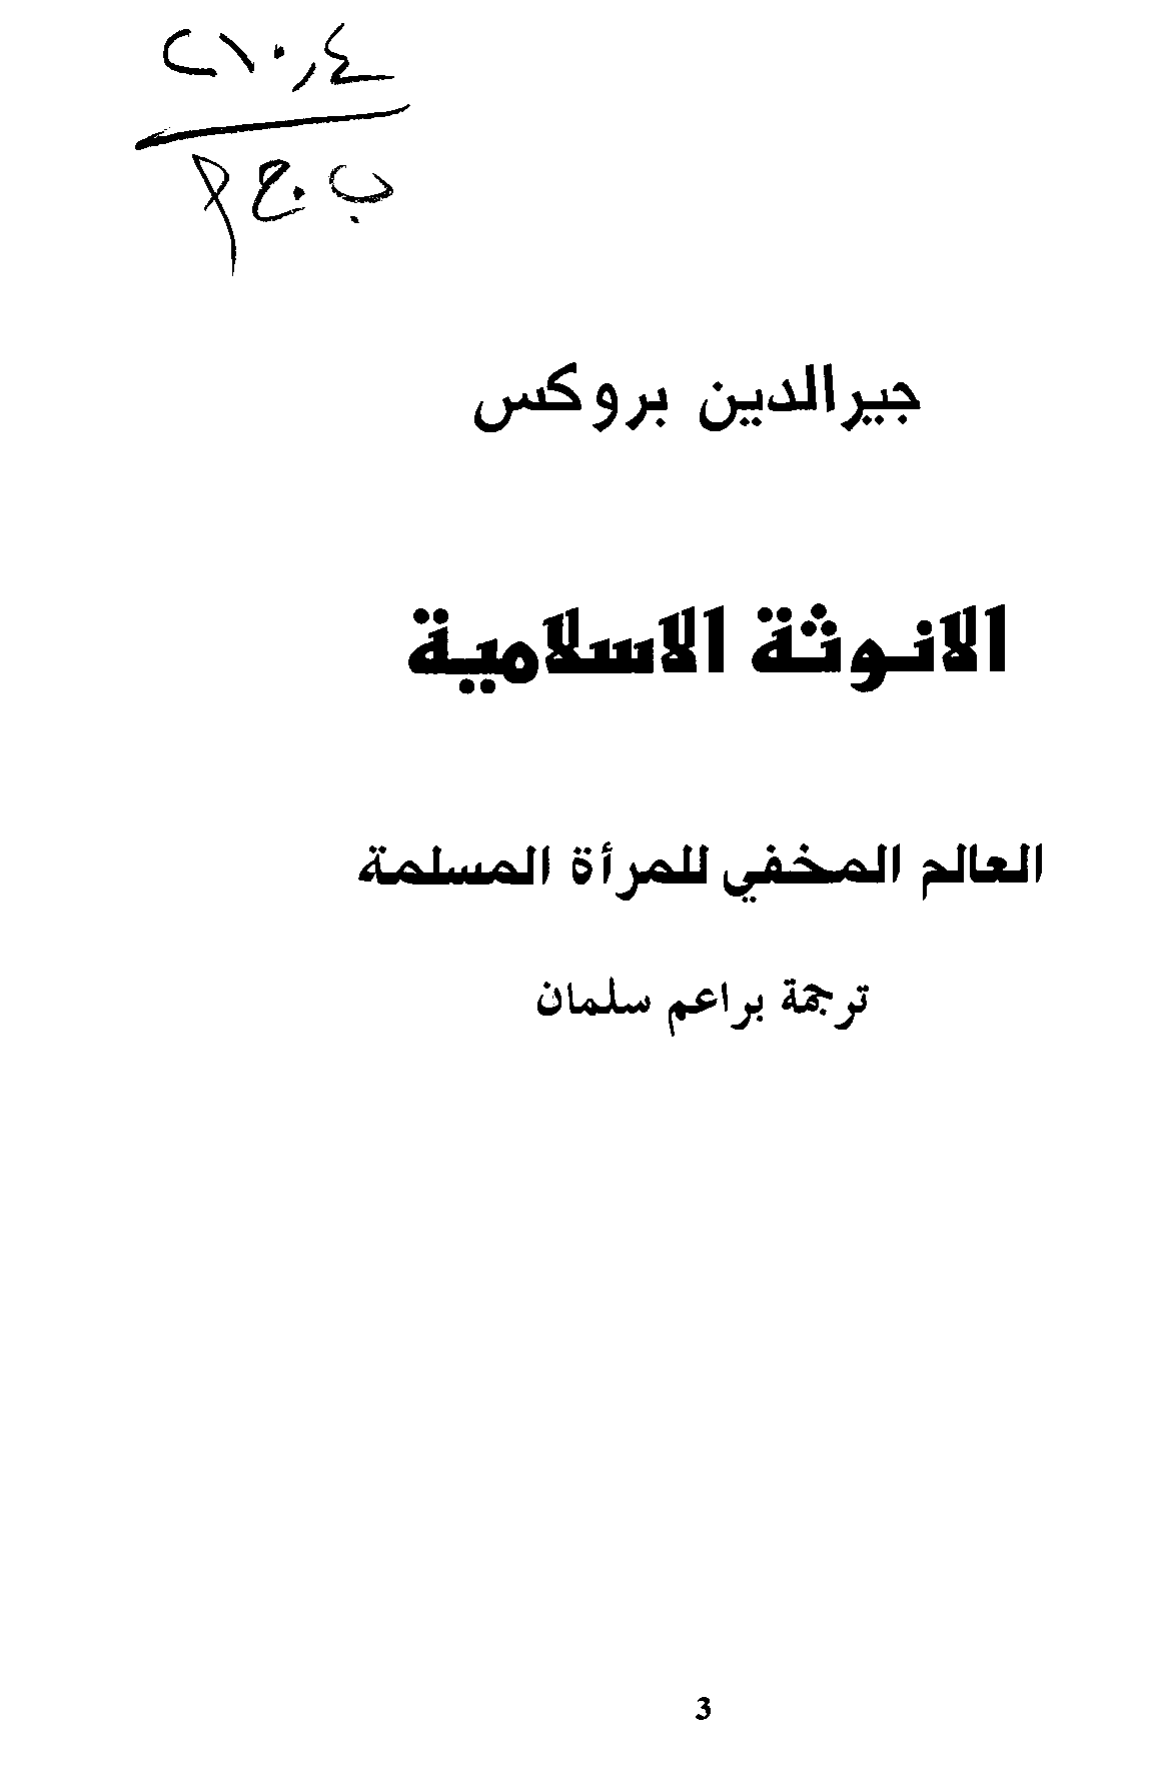 ٢١٠٫٤
ب.ج
جيرالدين بروكس
الانوثة الاسلامية
العالم المخفي للمرأة المسلمة
ترجمة براعم سلمان
3